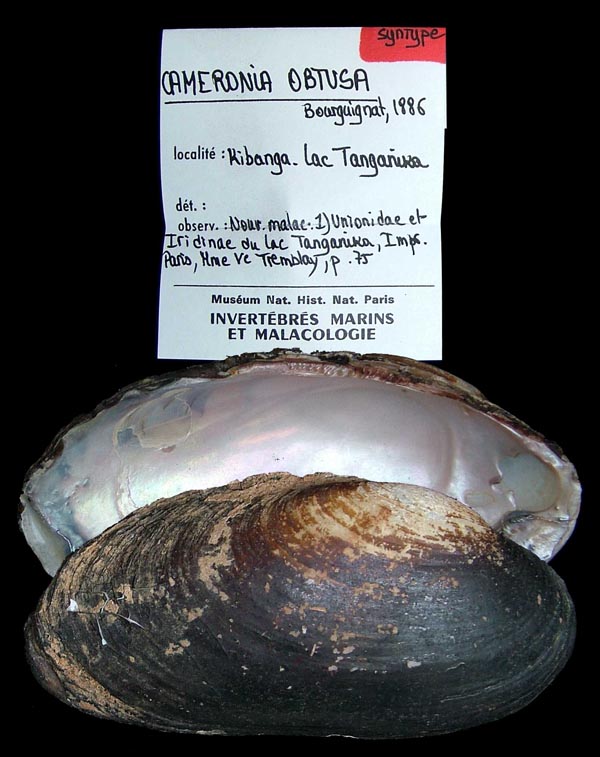 syntype
CAMERONIA OBTUSA
Bourguignat, 1886
localité : Kibanga - Lac Tanganika
dét. :
observ. : Nouv. malac. 1) Unionidae et
Iridinae du Lac Tanganika, Impr.
Paris, Mme Ve Tremblay, p. 75
Muséum Nat. Hist. Nat. Paris
INVERTÉBRÉS MARINS
ET MALACOLOGIE